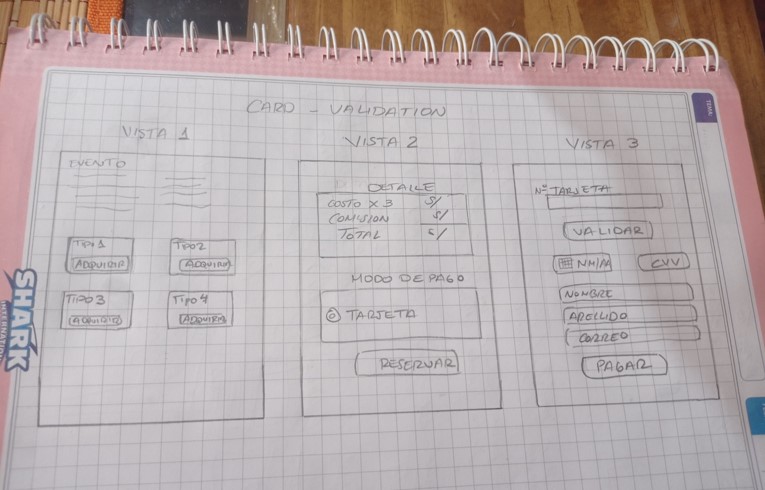 CARD - VALIDATION
VISTA 1
EVENTO
TIPO 1
ADQUIRIR
TIPO 2
ADQUIRIR
TIPO 3
ADQUIRIR
TIPO 4
ADQUIRIR
VISTA 2
DETALLE
COSTO X 3 S/
COMISION S/
TOTAL S/
MODO DE PAGO
TARJETA
RESERVAR
VISTA 3
Nº TARJETA
VALIDAR
MM/AA
CVV
NOMBRE
APELLIDO
CORREO
PAGAR
SHARK
INTERNATIONAL
TEMA: